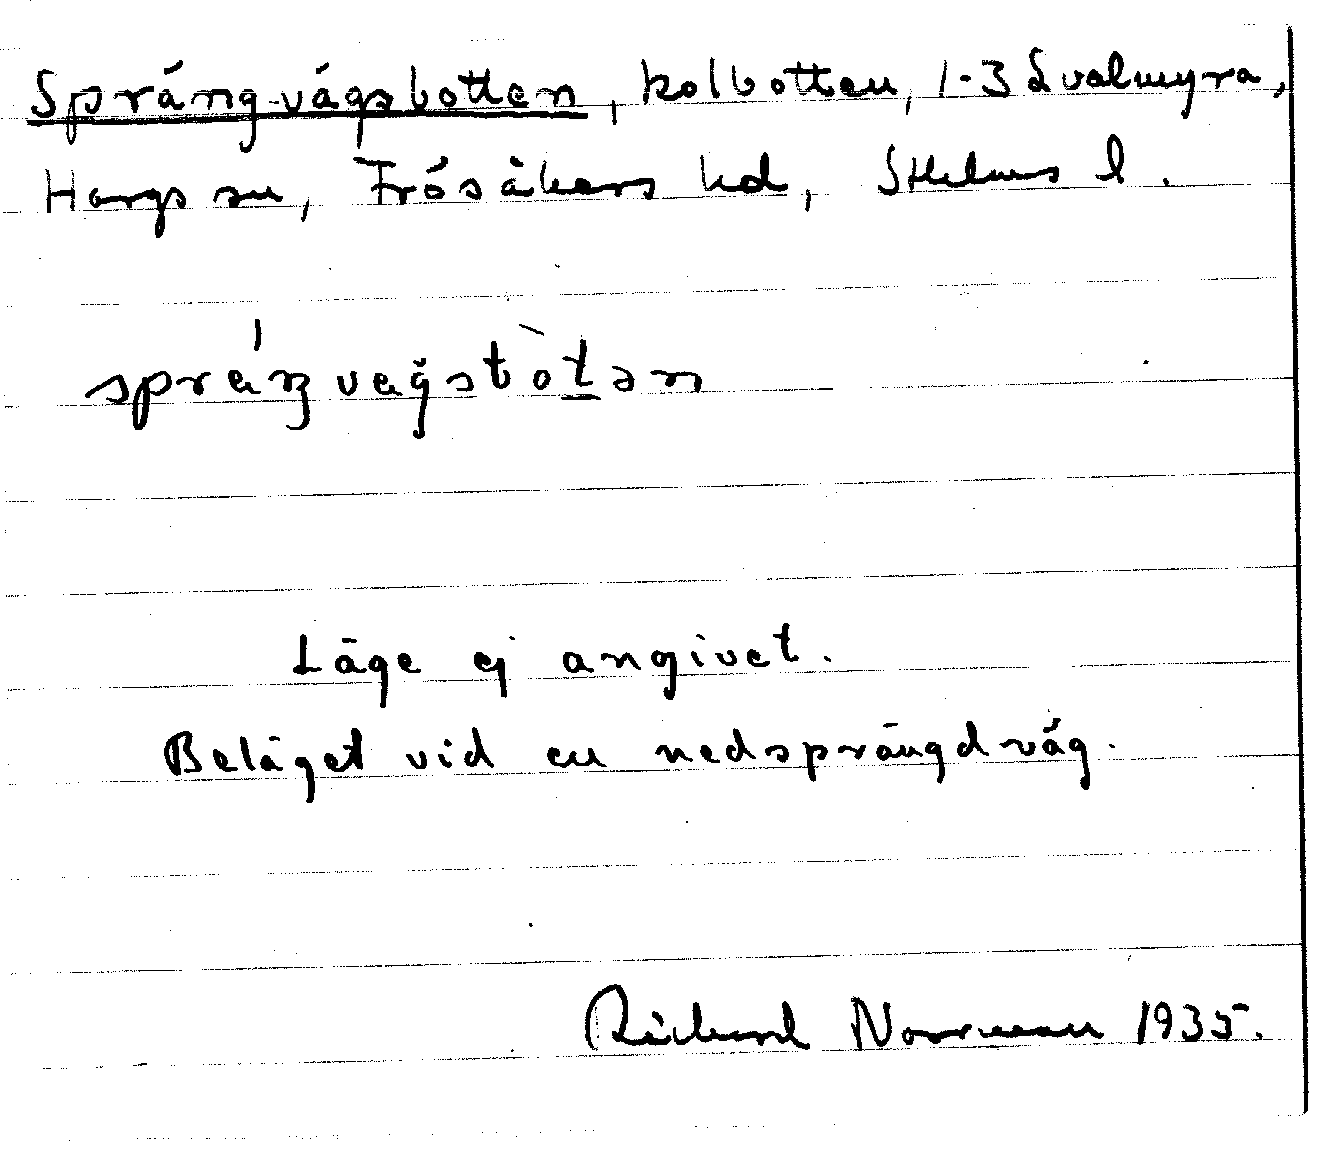 Sprängvägsbotten, kolbotten, 1-3 Svalmyra,
Hargs sn, Frösåkers hd, Sthlms l.
Läge ej angivet.
Beläget vid en nedsprängd väg.
Richard Norrman 1935.